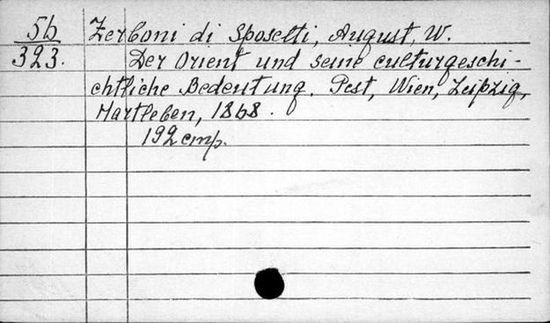 56 Zerboni di Sposetti, August, W.
323. Der Orient und seine culturgeschi-
chtliche Bedeutung. Pest, Wien, Leipzig,
Hartleben, 1868.
192 стр.